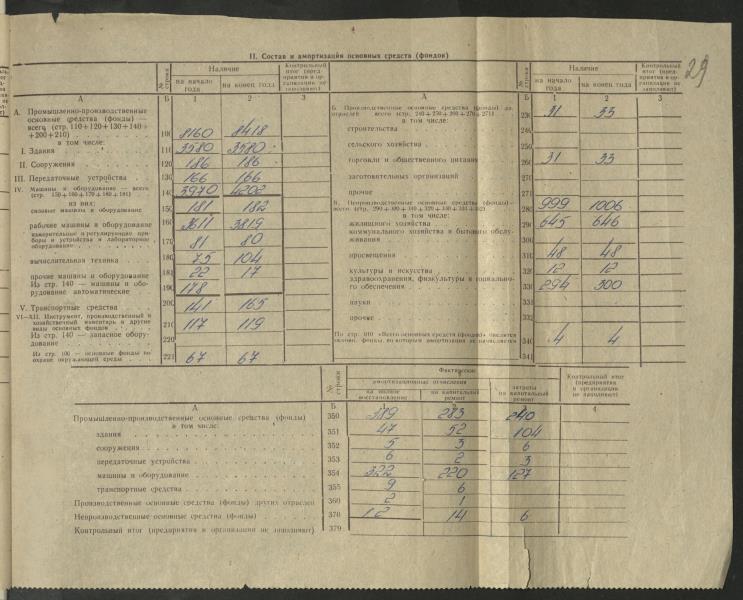 29
II. Состав и амортизация основных средств (фондов)
№ строки
Наличие
на начало года
на конец года
Контрольный итог (предприятия и организации не заполняют)
А Б 1 2 3
А. Промышленно-производственные основные средства (фонды) —
всего (стр. 110+120+130+140+
+200+210) 100 8160 8418
в том числе:
I. Здания 110 3580 3580
II. Сооружения 120 186 186
III. Передаточные устройства 130 166 166
IV. Машины и оборудование — всего
(стр. 150+160+170+180+181) 140 3970 4202
из них:
силовые машины и оборудование 150 181 182
рабочие машины и оборудование 160 3611 3819
измерительные и регулирующие приборы и устройства и лабораторное
оборудование 170 81 80
вычислительная техника 180 75 104
прочие машины и оборудование 181 22 17
Из стр. 140 — машины и оборудование автоматические 190 178
V. Транспортные средства 200 141 165
VI—XII. Инструмент, производственный и
хозяйственный инвентарь и другие
виды основных фондов 210 117 119
Из стр. 140 — запасное оборудование 220
Из стр. 100 — основные фонды по
охране окружающей среды 221 67 67
№ строки
Наличие
на начало года
на конец года
Контрольный итог (предприятия и организации не заполняют)
А Б 1 2 3
Б. Производственные основные средства (фонды) др.
отраслей — всего (стр. 240+250+260+270+271) 230 31 33
в том числе:
строительства 240
сельского хозяйства
торговли и общественного питания 260 31 33
заготовительных организаций
прочие 271
В. Непроизводственные основные средства (фонды) —
всего 280 999 1006
в том числе:
жилищного хозяйства 290 645 646
коммунального хозяйства и бытового обслуживания 300
просвещения 310 48 48
культуры и искусства 320 12 12
здравоохранения, физкультуры и социального обеспечения 330 294 300
науки 331
прочие
По стр. 340 «Всего основных средств (фондов)» числится
основн. фонды, по которым амортизация не начисляется 340 4 4
341
№ строки
Фактически
амортизационные отчисления
на полное восстановление
на капитальный ремонт
затраты на капитальный ремонт
Контрольный итог (предприятия и организации не заполняют)
А Б 1 2 3 4
Промышленно-производственные основные средства (фонды) 350 389 283 240
в том числе:
здания 351 47 52 104
сооружения 352 5 3 6
передаточные устройства 353 6 2 3
машины и оборудование 354 322 220 127
транспортные средства 355 9 6
Производственные основные средства (фонды) других отраслей 360 2 1
Непроизводственные основные средства (фонды) 370 12 14 6
Контрольный итог (предприятия и организации не заполняют) 379